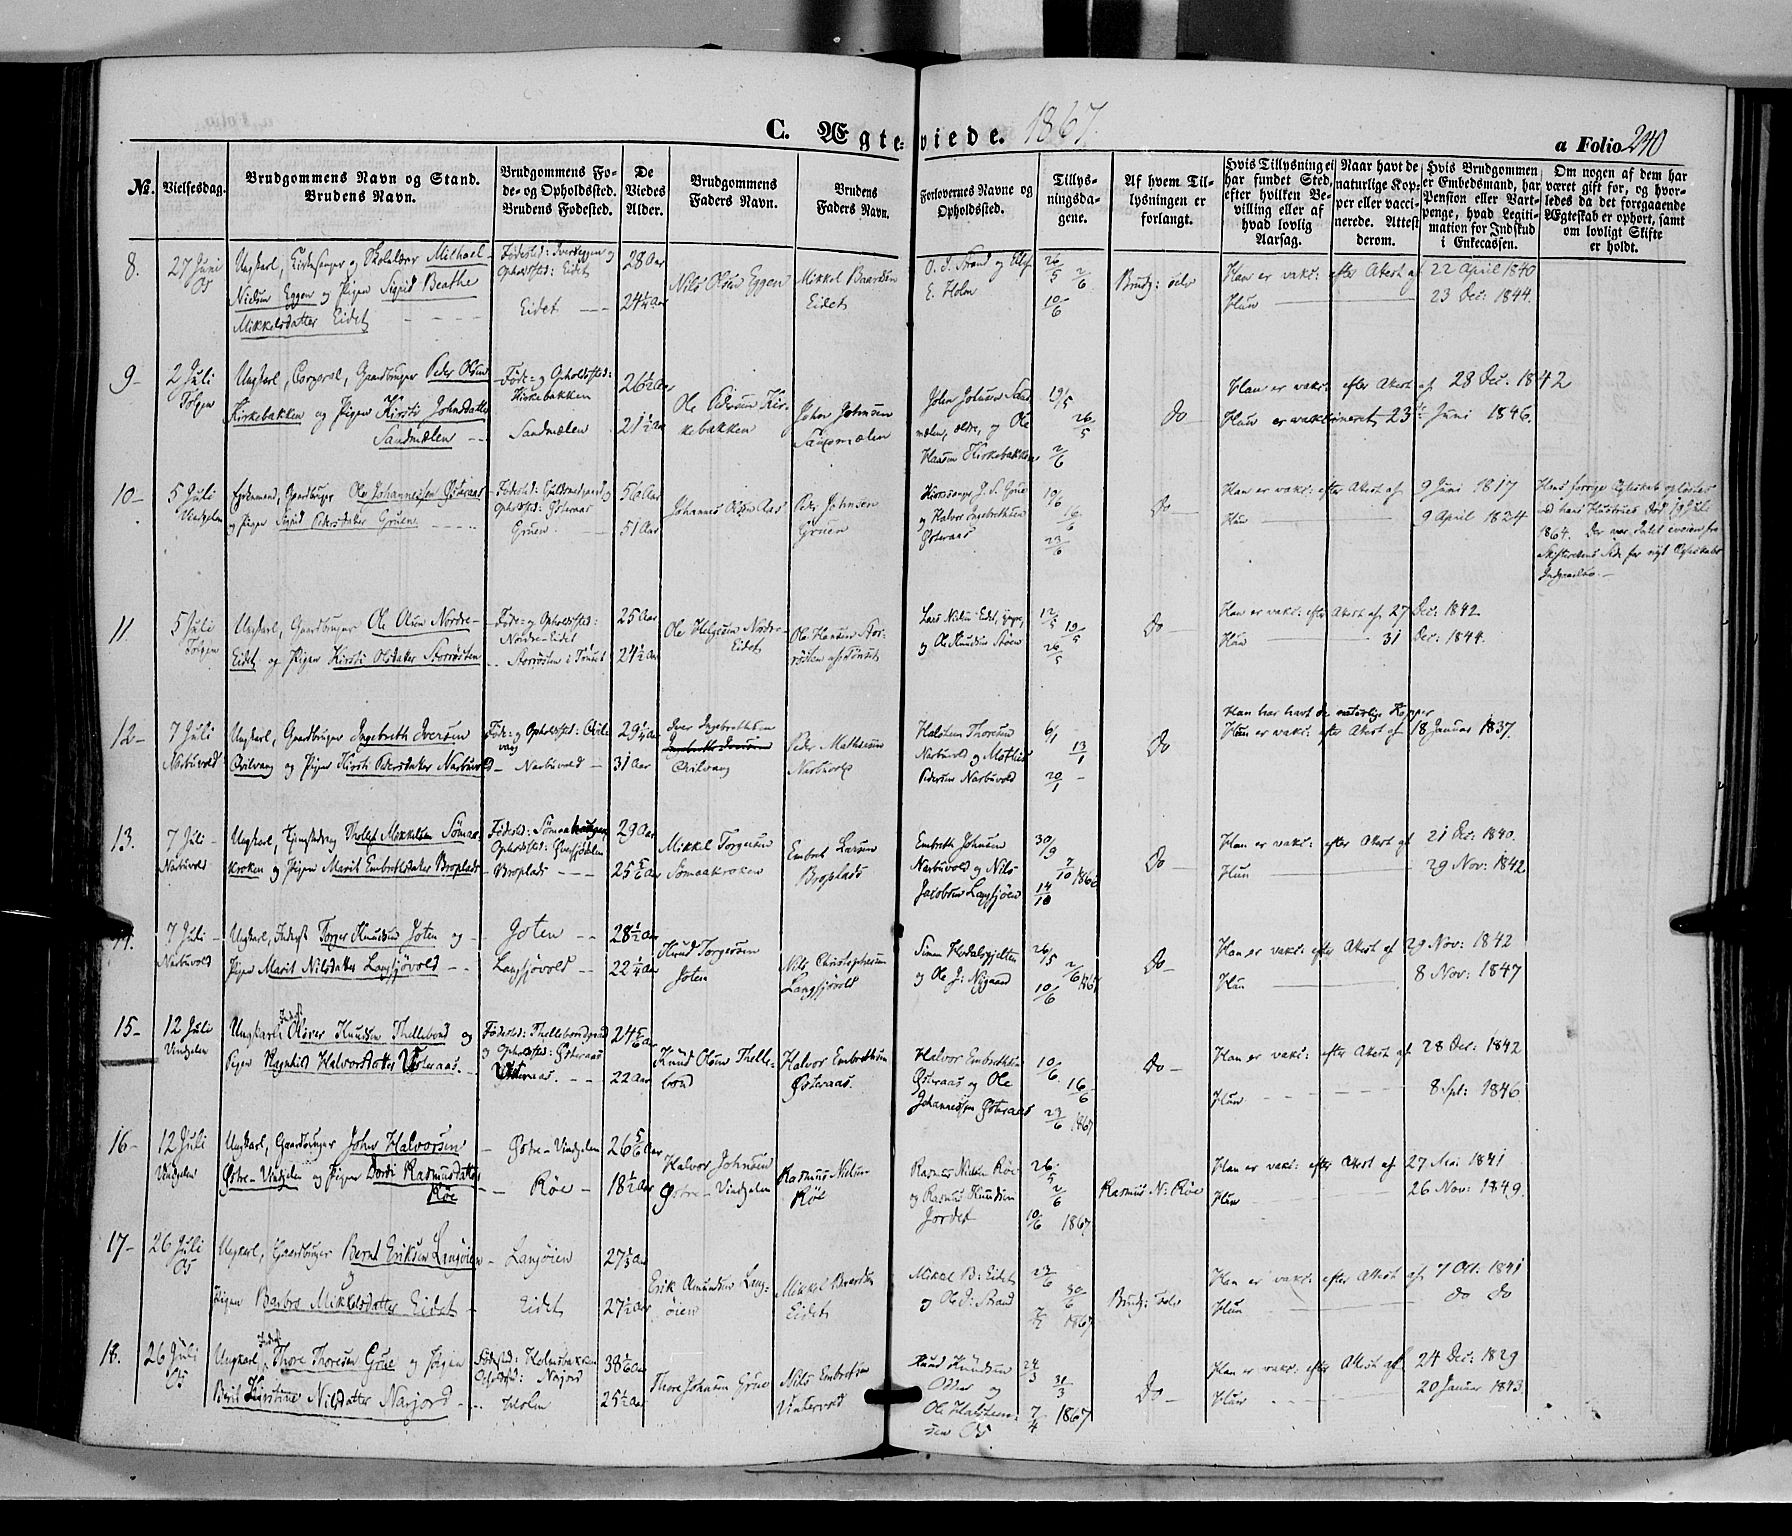 C. Ægteviede. 1867.
a Folio 240
No. Vielsesdag. Brudgommens Navn og Stand. Brudens Navn. Brudgommens Føde- og Opholdssted. Brudens Fødested. De Viedes Alder. Brudgommens Faders Navn. Brudens Faders Navn. Forlovernes Navne og Opholdssted. Tillysningsdagene. Af hvem Tillysningen er forlangt. Hvis Tillysning ei har fundet Sted, efter hvilken Bevilling eller af hvad lovlig Aarsag. Naar havt de naturlige Kopper eller vaccinerede. Attest derom. Hvis Brudgommen er Embedsmand, har Pension eller Vartpenge, hvad Legitimation for Indskud i Enkecassen. Om nogen af dem har været gift før, og hvorledes da det foregaaende Ægteskab er ophørt, samt om lovligt Skifte er holdt.
8. 27 Juni Os
Ungkarl, Kirkesanger og Skolelærer Michael
Nielsen Eggen og Pigen Sigrid Beathe
Mikkelsdatter Eidet
Opholdssted: Eidet
Eidet
28 Aar
24¼ Aar
Nils Olsen Eggen
Mikkel Baardsen Eidet
O. J. Strand og
E. Holm
26/5 2/6 10/6
Brudg: selv
Han er vakc: efter Attest af 22 April 1840
Hun 23 Dec: 1844.
9- 2 Juli Tolgen
Ungkarl, Corporal, Gaardbruger Peder Olsen
Kirkebakken og Pigen Kirsti Johnsdatter
Sandmælen
Føde- og Opholdssted: Kirkebakken
Sandmælen
26½ Aar
21½ Aar
Ole Pedersen Kirkebakken
John Johnsen Sandmælen
John Johnsen Sandmælen, ældre, og Ole
Hansen Kirkebakken
19/5 26/5 2/6
Do
Han er vakc: efter Attest af 28 Dec. 1842
Hun er vakcineret 23 Juni 1846.
10- 5 Juli Vingelen
Enkemand, Gaardbruger Ole Johannessen Østeraas
og Pigen Sigrid Pedersdatter Gruen
Opholdssted: Østeraas
Gruen
56 Aar
51 Aar
Johannes Olsen Aas
Peder Johnsen Gruen
Kirkesanger J. S. Grue
og Halvor Ingebrethsen
Østeraas
19/6 16/6 23/6
Do
Han er vakc: efter Attest af 9 Juni 1817
Hun 9 April 1824
Hans forrige Ægteskab opløstes
ved hans Hustrues Død 19 Juli
1864. Der var Intet iveien fra
Skifterettens Side for nyt Ægteskabs
Indgaaelse.
11 5 Juli Tolgen
Ungkarl, Gaardbruger Ole Olsen Nordre-
Eidet og Pigen Kirsti Olsdatter Storrøsten
Føde- og Opholdssted: Nordre-Eidet
Storrøsten i Tønset
25 Aar
24½ Aar
Ole Helgesen Nordre-Eidet
Ole Hansen Storrøsten af Tønset
Lars Nilsen Eidet, yngre,
og Ole Knudsen Støen
12/5 19/5 26/5
Do
Han er vakc: efter Attest af 27 Dec: 1842.
Hun 31 Dec: 1844.
12- 7 Juli Narbuvold
Ungkarl, Gaardbruger Ingebreth Iversen
og Pigen Kirsti Pedersdatter Narbuvold
Føde- og Opholdssted:
Narbuvold
29¼ Aar
31 Aar
Iver Ingebrethsen
Peder Mathiesen Narbuvold
Halsten Thoresen
Narbuvold og Mathis
Pedersen Narbuvold
6/1 13/1 20/1
Do
Han har havt de naturlige Kopper
Hun er vakc: efter Attest af 18 Januar 1837.
13. 7 Juli Narbuvold
Ungkarl, Tholf Mikkelsen Sømaa-
kroken og Pigen Marit Embretsdatter Broplads
Fødested: Sømaakroken
Broplads
29 Aar
25 5/6 Aar
Mikkel Torgersen Sømaakroken
Embret Larsen Broplads
Embreth Johnsen
Narbuvold og Nils
Jacobsen Langsjøen
30/9 7/10 1866 14/10
Do
Han er vakc: efter Attest af 21 Dec: 1840.
Hun 29 Nov: 1842
14. 7 Juli Narbuvold
Ungkarl, Inderst Torger Knudsen Joten og
Pigen Marit Nilsdatter Langsjøvold
Joten
Langsjøvold
28½ Aar
22¼ Aar
Knud Torgersen Joten
Nils Christophersen Langsjøvold
Simen
og Ole J: Nygaard
26/5 2/6 1867 10/6
Do
Han er vakc: efter Attest af 29 Nov: 1842
Hun 8 Nov: 1847
15- 12 Juli Vingelen
Ungkarl Oliver Knudsen Thellebond og
Pigen Ragnhild Halvorsdatter Østeraas.
og Opholdssted: Østeraas
Østeraas.
24 5/6 Aar
22 Aar
Knud Olsen Thellebond
Halvor Embrethsen Østeraas
Halvor Embrethsen
Østeraas og Ole
Johannessen Østeraas
10/6 16/6 23/6 1867
Do
Han er vakc: efter Attest af 28 Dec: 1842
Hun 8 Spt: 1846
16- 12 Juli Vingelen
Ungkarl, Gaardbruger John Halvorsen
Østre-Vingelen og Pigen Dordi Rasmusdatter
Røe
Østre-Vingelen
Røe
26 5/6 Aar
18½ Aar
Halvor Johnsen Østre-Vingelen
Rasmus Nilsen Røe
Rasmus Nilsen Røe
og Rasmus Knudsen
Jordet
26/5 2/6 10/6 1867
Rasmus N: Røe
Han er vakc: efter Attest af 27 Mai 1841
Hun 26 Nov: 1849.
17- 26 Juli Os
Ungkarl, Gaardbruger Bernt Eriksen Langøien
og
Pigen Barbro Mikkelsdatter Eidet
Langøien
Eidet
27½ Aar
Erik Amundsen Langøien
Mikkel Baardsen Eidet
Mikkel B: Eidet
og Ole J: Strand
23/6 30/6 1867
Brudg: selv
Han er vakc: efter Attest af 7 Oct. 1841
Hun do do
18. 26 Juli Os
Ungkarl, Thore Thoresen Grue og Pigen
Berit Kirstine Nilsdatter Narjord
Fødested: Holmsbakken
Holm
38 1/6 Aar
25½ Aar
Thore Johnsen Grue
Nils Embretsen Vintervold
Knud Knudsen
og
Ole Halstensen Os
24/3 31/3 7/4 1867
Do
Han er vakc: efter Attest af 24 Dec: 1829
Hun 20 Januar 1843.